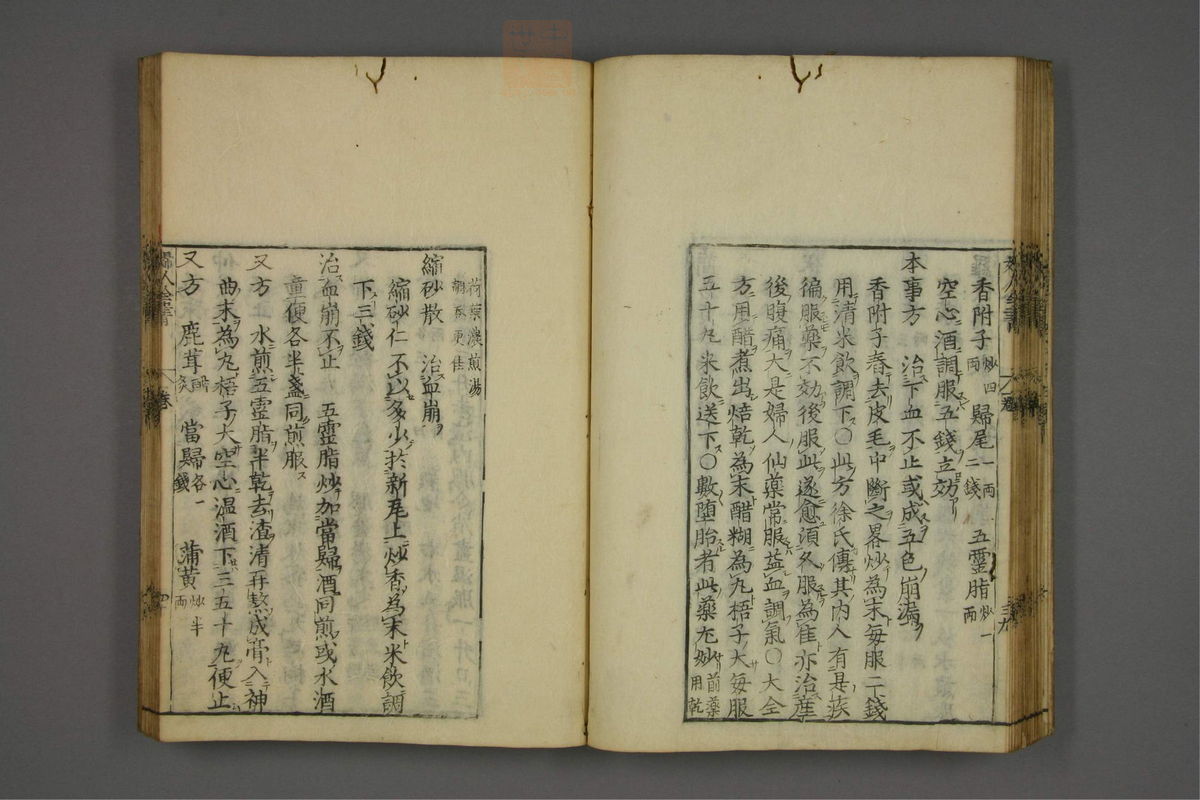 香附子炒四両　歸尾一両二錢　五靈脂炒一両
空心酒調服五錢立効
本事方　治下血不止或成五色崩漏
香附子舂去皮毛中斷之畧炒為末每服二錢
用清米飲調下〇此方徐氏傳其内人有是疾
徧服藥不効後服此遂愈須久服為佳亦治産
後腹痛大是婦人仙藥常服益血調氣〇大全
方用醋煮出焙乾為末醋糊為丸梧子大每服
五十丸米飲送下〇數堕胎者此藥尤妙前藥用乾
荷葉濃煎湯調服更佳
縮砂散　治血崩
縮砂仁不以多少於新瓦上炒香為末米飲調
下三錢
治血崩不止　五靈脂炒加當歸酒同煎或水酒
童便各半盞同煎服
又方　水煎五靈脂半乾去渣清再熬成膏入神
曲末為丸梧子大空心温酒下三五十丸便止
又方　鹿茸酒炙　當歸各一錢　蒲黄炒半両